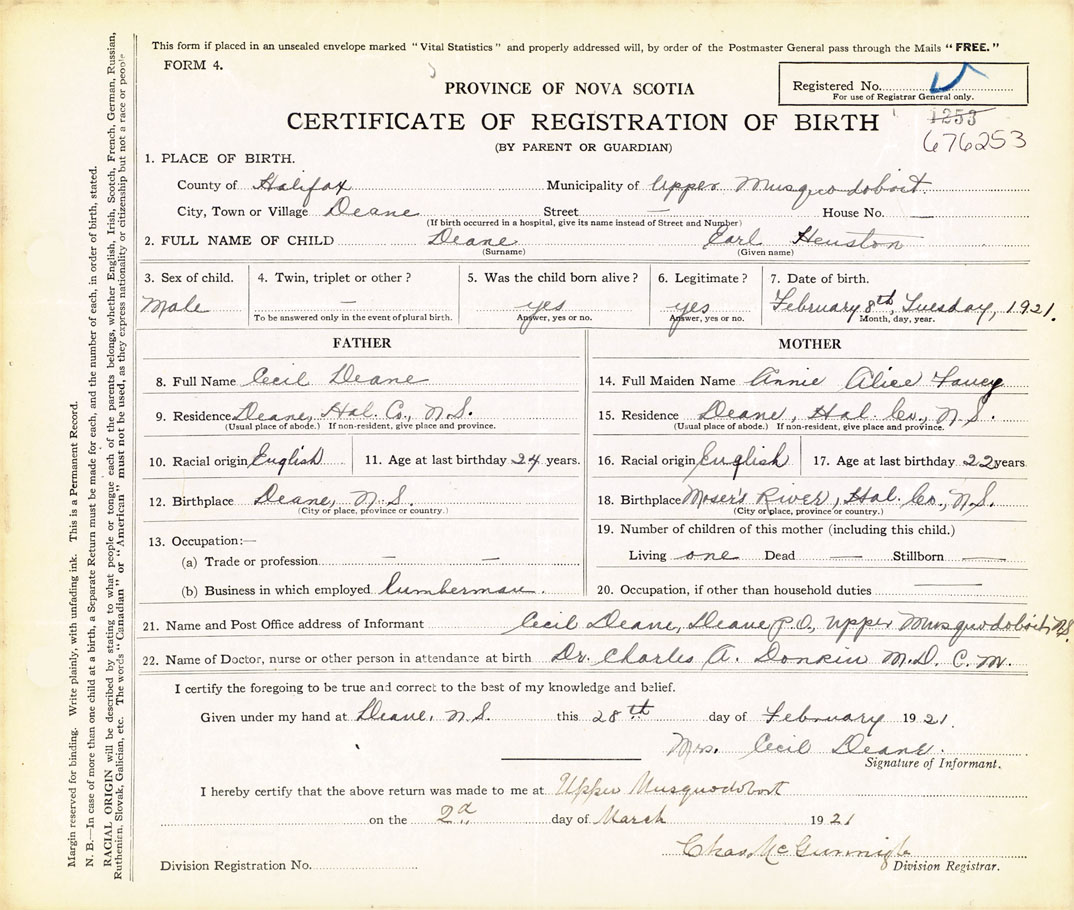 This form if placed in an unsealed envelope marked "Vital Statistics" and properly addressed will, by order of the Postmaster General pass through the Mails "FREE."
FORM 4.
Registered No.
For use of Registrar General only.
PROVINCE OF NOVA SCOTIA
1253
CERTIFICATE OF REGISTRATION OF BIRTH
676253
(BY PARENT OR GUARDIAN)
1. PLACE OF BIRTH.
County of Halifax Municipality of Upper Musquodoboit
City, Town or Village Deane Street — House No. —
(If birth occurred in a hospital, give its name instead of Street and Number)
2. FULL NAME OF CHILD Deane Earl Heuston
(Surname) (Given name)
3. Sex of child. 4. Twin, triplet or other? 5. Was the child born alive? 6. Legitimate? 7. Date of birth.
Male — yes yes February 8th, Tuesday, 1921.
To be answered only in the event of plural birth. Answer, yes or no. Answer, yes or no. Month, day, year.
FATHER MOTHER
8. Full Name Cecil Deane 14. Full Maiden Name Annie Alice
9. Residence Deane, Hal. Co., N.S. 15. Residence Deane, Hal. Co., N.S.
(Usual place of abode.) If non-resident, give place and province. (Usual place of abode.) If non-resident, give place and province.
10. Racial origin English 11. Age at last birthday 24 years. 16. Racial origin English 17. Age at last birthday 22 years.
12. Birthplace Deane, N.S. 18. Birthplace Moser's River, Hal. Co., N.S.
(City or place, province or country.) (City or place, province or country.)
13. Occupation:— 19. Number of children of this mother (including this child.)
(a) Trade or profession — — Living one Dead — Stillborn —
(b) Business in which employed Lumberman. 20. Occupation, if other than household duties —
21. Name and Post Office address of Informant Cecil Deane, Deane P.O, Upper Musquodoboit, N.S.
22. Name of Doctor, nurse or other person in attendance at birth Dr. Charles A. Donkin M.D. C.M.
I certify the foregoing to be true and correct to the best of my knowledge and belief.
Given under my hand at Deane, N.S. this 28th day of February 1921.
Mrs. Cecil Deane.
Signature of Informant.
I hereby certify that the above return was made to me at Upper Musquodoboit
on the 2d day of March 1921
Chas. McGunnigle
Division Registration No. Division Registrar.
Margin reserved for binding. Write plainly, with unfading ink. This is a Permanent Record.
N. B.—In case of more than one child at a birth, a Separate Return must be made for each, and the number of each, in order of birth, stated.
RACIAL ORIGIN will be described by stating to what people or tongue each of the parents belongs, whether English, Irish, Scotch, French, German, Russian,
Ruthenian, Slovak, Galician, etc. The words "Canadian" or "American" must not be used, as they express nationality or citizenship but not a race or people